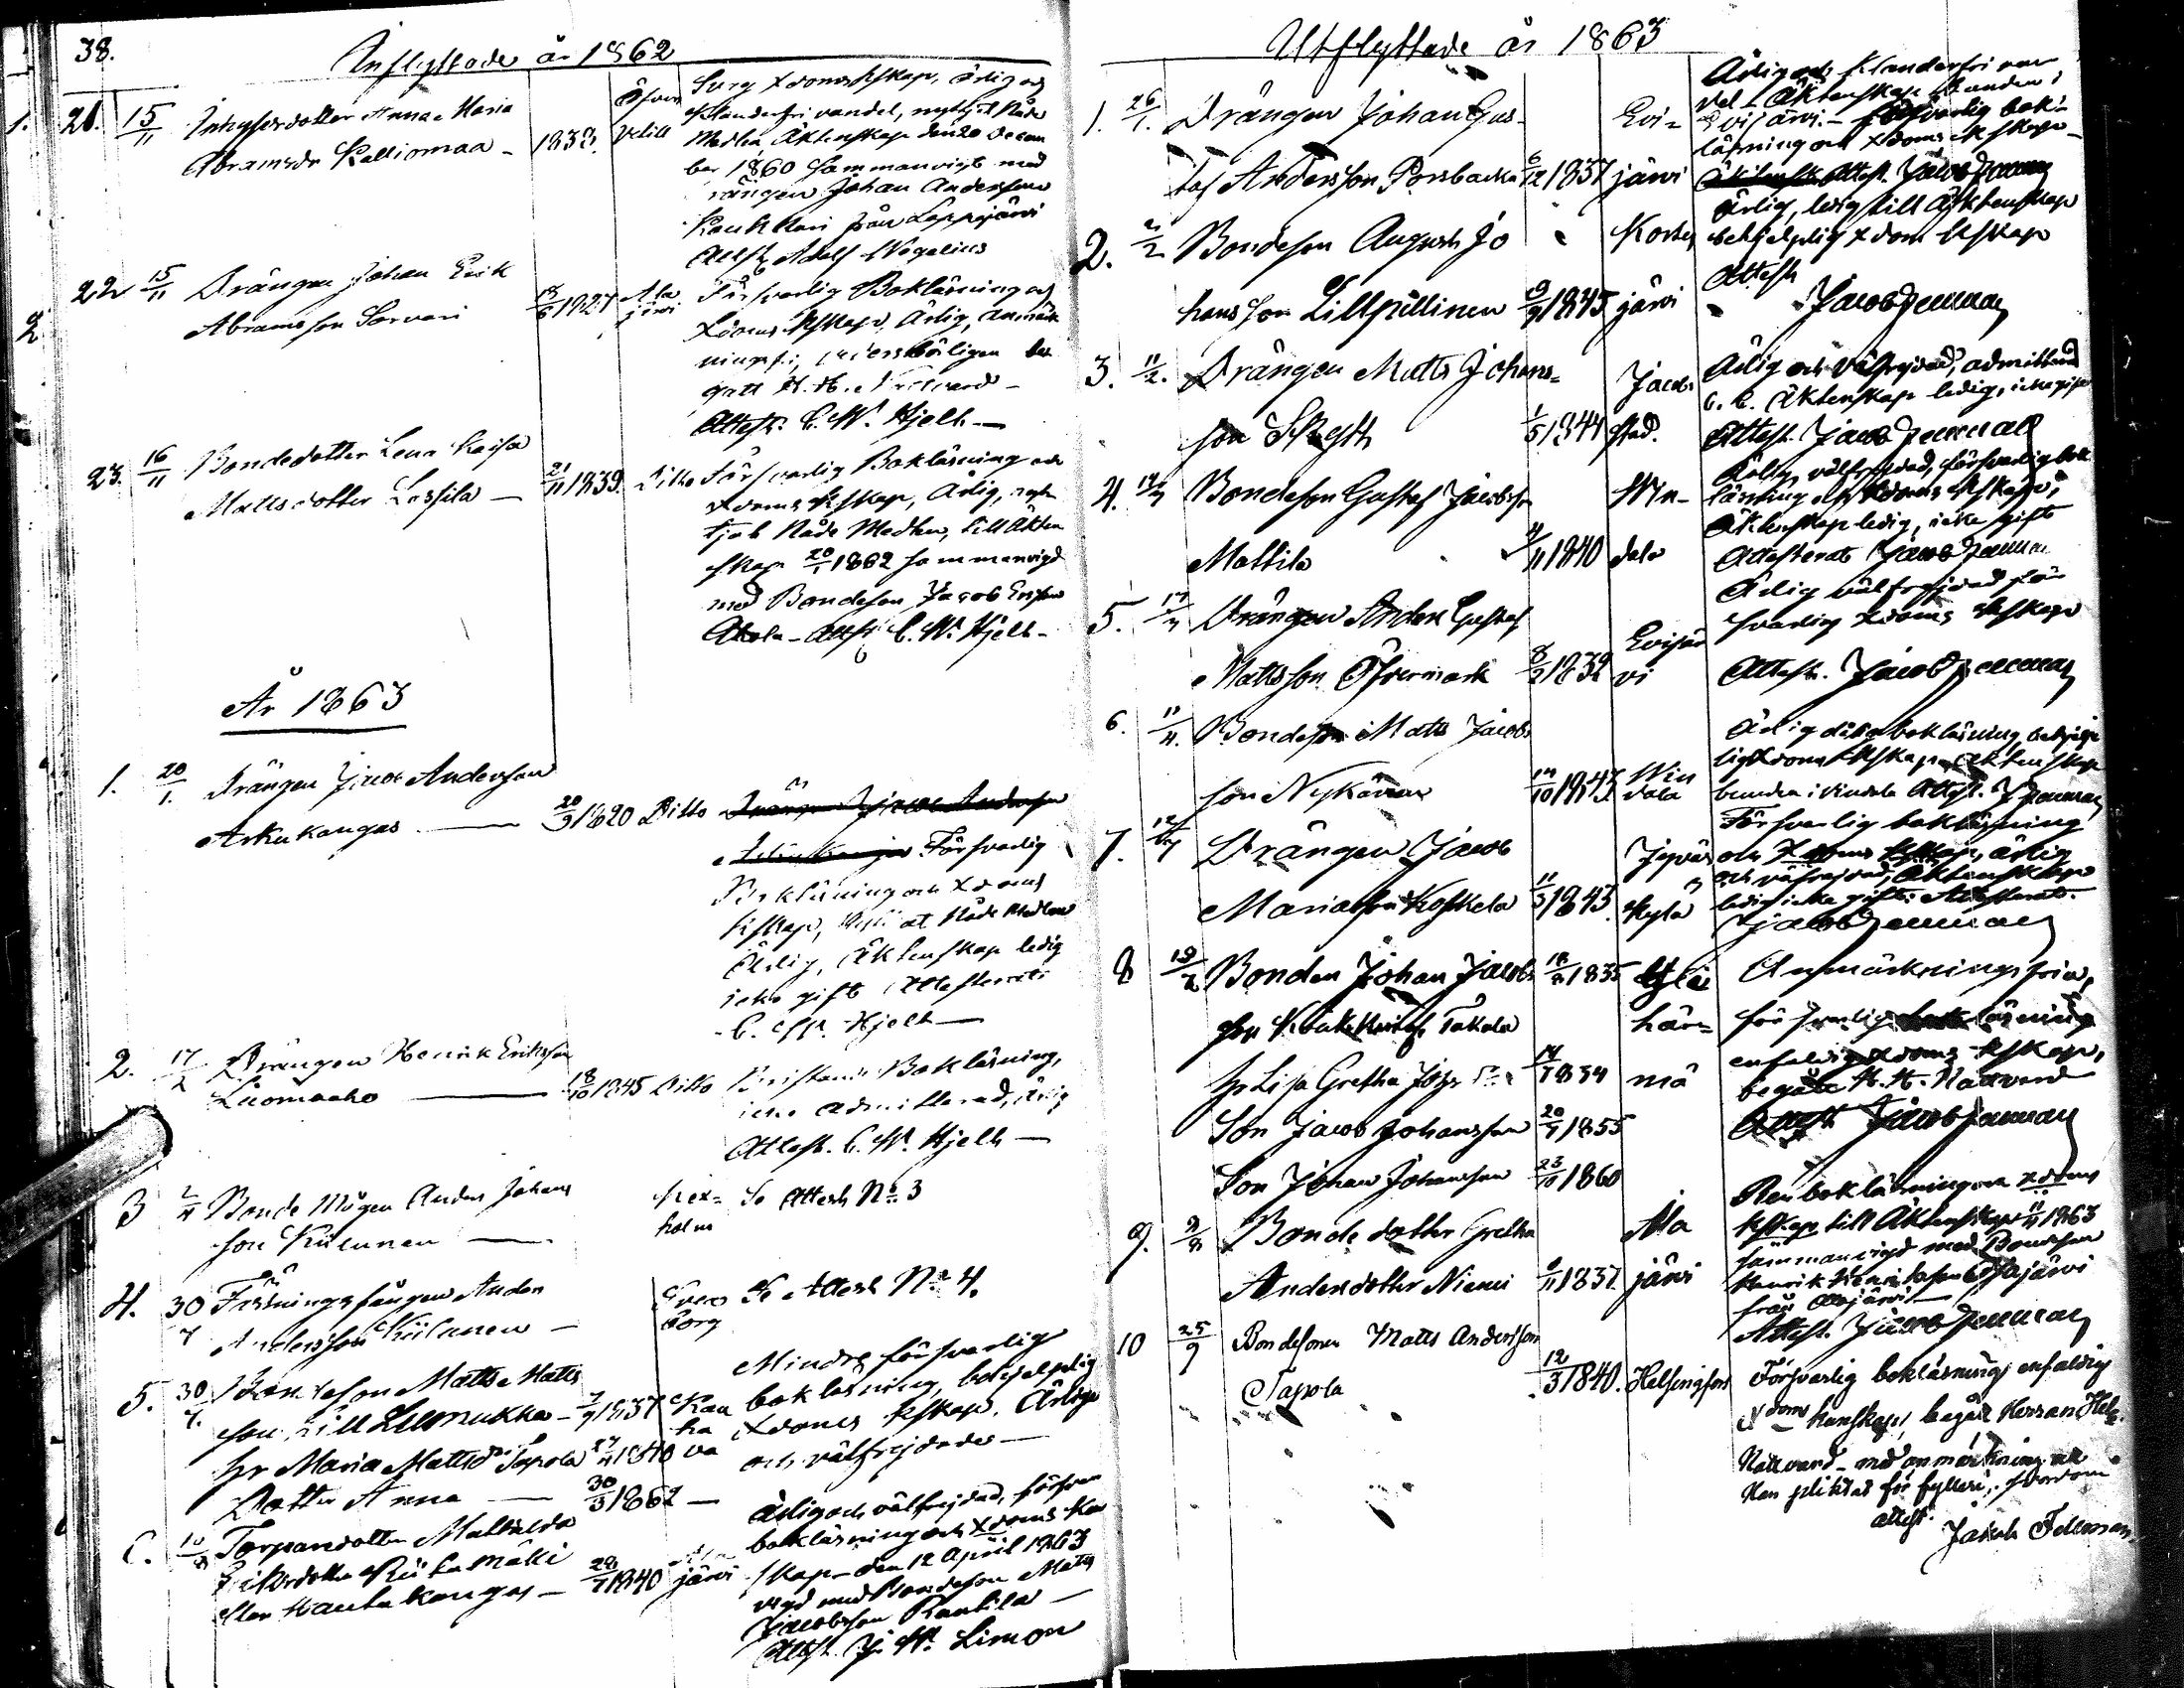 38.
Inflyttade år 1862
21. 15/11 Inhysesdotter Anna Maria
Abramsdr Kalliomaa - 1833. Öfver Vetill
Svag Xdomskskap, ärlig och
klanderfri vandel, nyttjat Nåde
Medlen, Äktenskap den 20 Decem
ber 1860 sammanvigt med
drängen Johan Andersson
Kaukkari från Lappajärvi
Attest. Adolf Wegelius
22 15/11 Drängen Johan Erik
Abramsson Sorvari 1827 Ala järvi
Försvarlig Bokläsning och
Xdoms kskap, Ärlig, anmärk
ningsfri,
gått H. H. Nattvard -
Attest. C. W. Hjelt -
23. 16/11 Bondedotter Lena Kaisa
Mattsdotter Lassila - 21/11 1839. Ditto
Försvarlig Bokläsning och
Xdoms kskap, Ärlig, nyt
tjat Nåde Medlen, till Äkten
skap 20/1 1862 sammanvigd
med Bondeson Jacob Ersson
Akola - Attest C. W. Hjelt -
År 1863
1. 20/1. Drängen Jacob Andersson
Arkukangas - 20/9 1820 Ditto
Försvarlig
Bokläsning och Xdoms
kskap, Nåde Medlen
Ärlig, Äktenskap ledig
icke gift Attesterati
C. W. Hjelt -
2. 17/2 Drängen Henrik Eriksson
Luomaaho - 18/10 1845 Ditto
Bristande Bokläsning,
icke admitterad, ärlig
Attest. C. W. Hjelt -
3 2/4 Bonde Mågen Anders Johans
son Kiilunen - Kex= holm Se Attest No 3
4. 30/7 Fästningsfången Anders
Andersson Kiilunen - Svea borg Se Attest No 4.
5. 30/7. Bondeson Matts Matts
son Lillmukka - 7/9 1837 Kau
hr Maria Mattsdr Tapola 1840 ha va
Dotter Anna - 30/3 1862 -
Mindre försvarlig
bokläsning, behjelplig
Xdoms kskap. Ärliga
och välfrejdade -
6. 10/8 Torparedotter Mathilda
Eriksdotter Riihimäki
eller Hautakangas - 28/7 1840 Ala järvi
Ärlig och välfrejdad, försvar
bokläsning och Xdoms kun
skap - den 12 April 1863
vigd med Bondeson Matts
Jacobsson Rantila -
Attest. J. W. Limon
Utflyttade år 1863
1. 26/1. Drängen Johan Gus-
taf Andersson Porsbacka 6/12 1837 Evi= järvi
Ärlig och klanderfri van
del - Äktenskap
Evijärvi. - Försvarlig bok=
läsning och Xdoms kskap -
Attest. Jacob Fellman
2. 2/2 Bondeson August Jo
hansson Lillpillinen 9/9 1845 Kortes järvi
Ärlig, ledig till Äktenskap
behjelplig Xdom kskap
Attest
Jacob Fellman
3. 11/2. Drängen Matts Johans=
son Skytt 1/5 1844 Jacobs stad.
Ärlig och välfrejdad, admitterad
Äktenskap ledig, icke gift
Attest. Jacob Fellman
4. Bondeson Gustaf Jacobsson
Mattila 1840 Win- dala
Ärlig, välfrejdad, försvarlig bok
läsning och Xdoms kskap,
Äktenskap ledig, icke gift
Attesterats Jacob Fellman
5. Drängen Anders Gustaf
Mattsson Öfvermark 8/2 1832 Evijär vi
Ärlig välfrejdad för
svarlig Xdoms kskap
Attest. Jacob Fellman
6. 11/4. Bondeson Matts Jacobs
son Nykänen 14/10 1843 Win dala
Ärlig dito bokläsning behjelp
lig Xdoms kskap - äktenskap
i Vindala Attest. J. Fellman
7. 12/4 Drängen Jacob
Mariasson Koskela 11/3 1843. Jyväs kylä
Försvarlig bokläsning
och Xdoms kskap, ärlig
och välfrejdad, Äktenskap
ledig icke gift. Attesterat.
Jacob Fellman
8 19/2 Bonden Johan Jacobs 18/2 1835
son Takala
hr Lisa Gretha Johsdr 14/7 1834
Son Jacob Johansson 20/7 1855
Son Johan Johansson 23/10 1860
här= mä
Anmärkningsfria,
försvarlig läsning
enfaldig Xdoms kskap,
begått H. H. Nattvard
Attest Jacob Fellman
9. 9/8 Bondedotter Gretha
Andersdotter Niemi 1837. Ala järvi
Ren bokläsning och Xdoms
kskap till Äktenskap 11/11 1863
sammanvigd med Bondeson
Henrik Henriksson
från Alajärvi -
Attest. Jacob Fellman
10 25/9 Bondesonen Matts Andersson
Tapola 12/3 1840. Helsingfors
Försvarlig bokläsning enfaldig
Xdoms kunskap, begått Herrans Hel.
Nattvard - med anmärkning att
Han pliktat för fylleri, svordom
attest. Jakob Fellman.